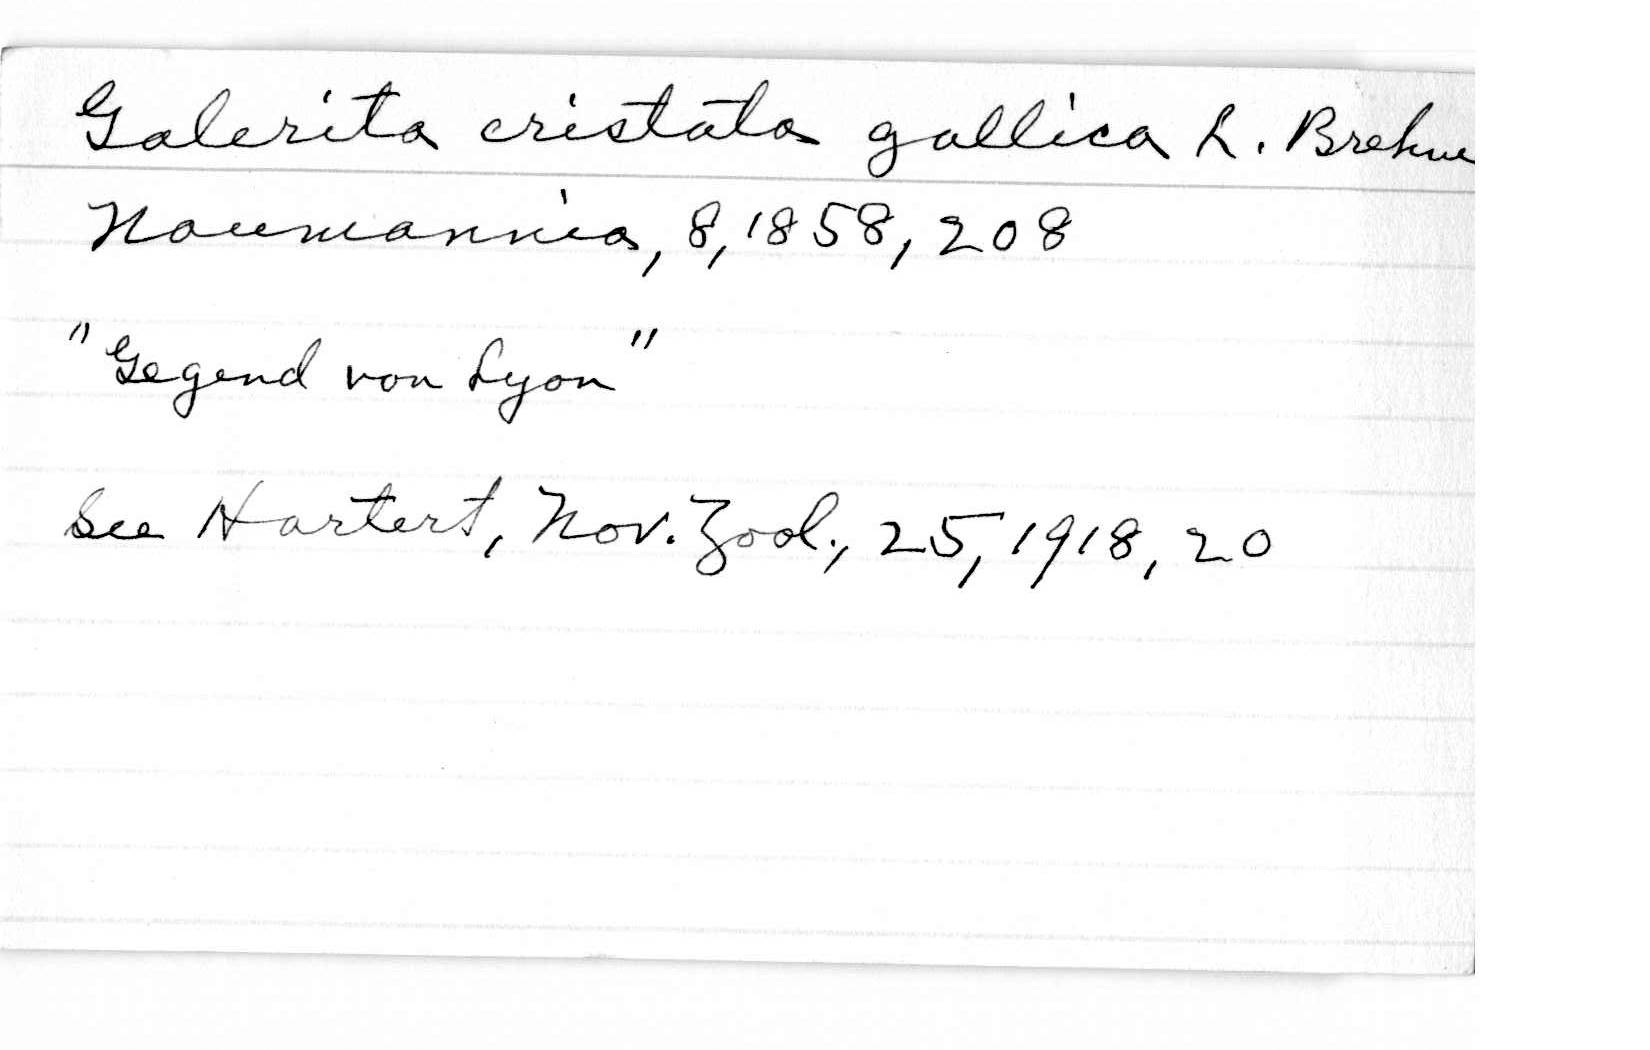 Galerita cristata gallica L. Brehm
Naumannia, 8, 1858, 208
"Gegend von Lyon"
See Hartert, Nov. Zool., 25, 1918, 20